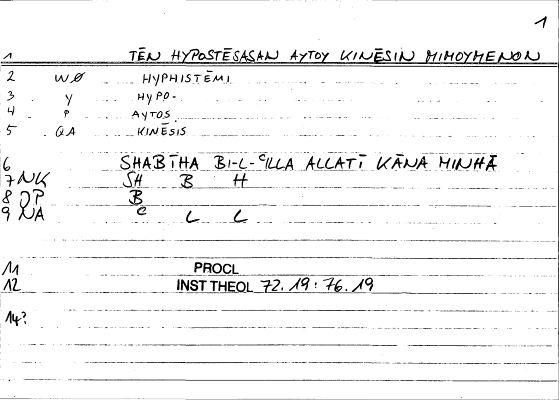 1
1 TĒN HYPOSTĒSASAN AYTOY KINĒSIN MIMOYMENON
2 WØ HYPHISTĒMI
3 Y HYPO-
4 P AYTOS
5 QA KINĒSIS
6 SHABĪHA BI-L-ᶜILLA ALLATĪ KĀNA MINHĀ
7 NK SH B H
8 OP B
9 NA ᶜ L L
11 PROCL
12 INST THEOL 72.19:76.19
14?